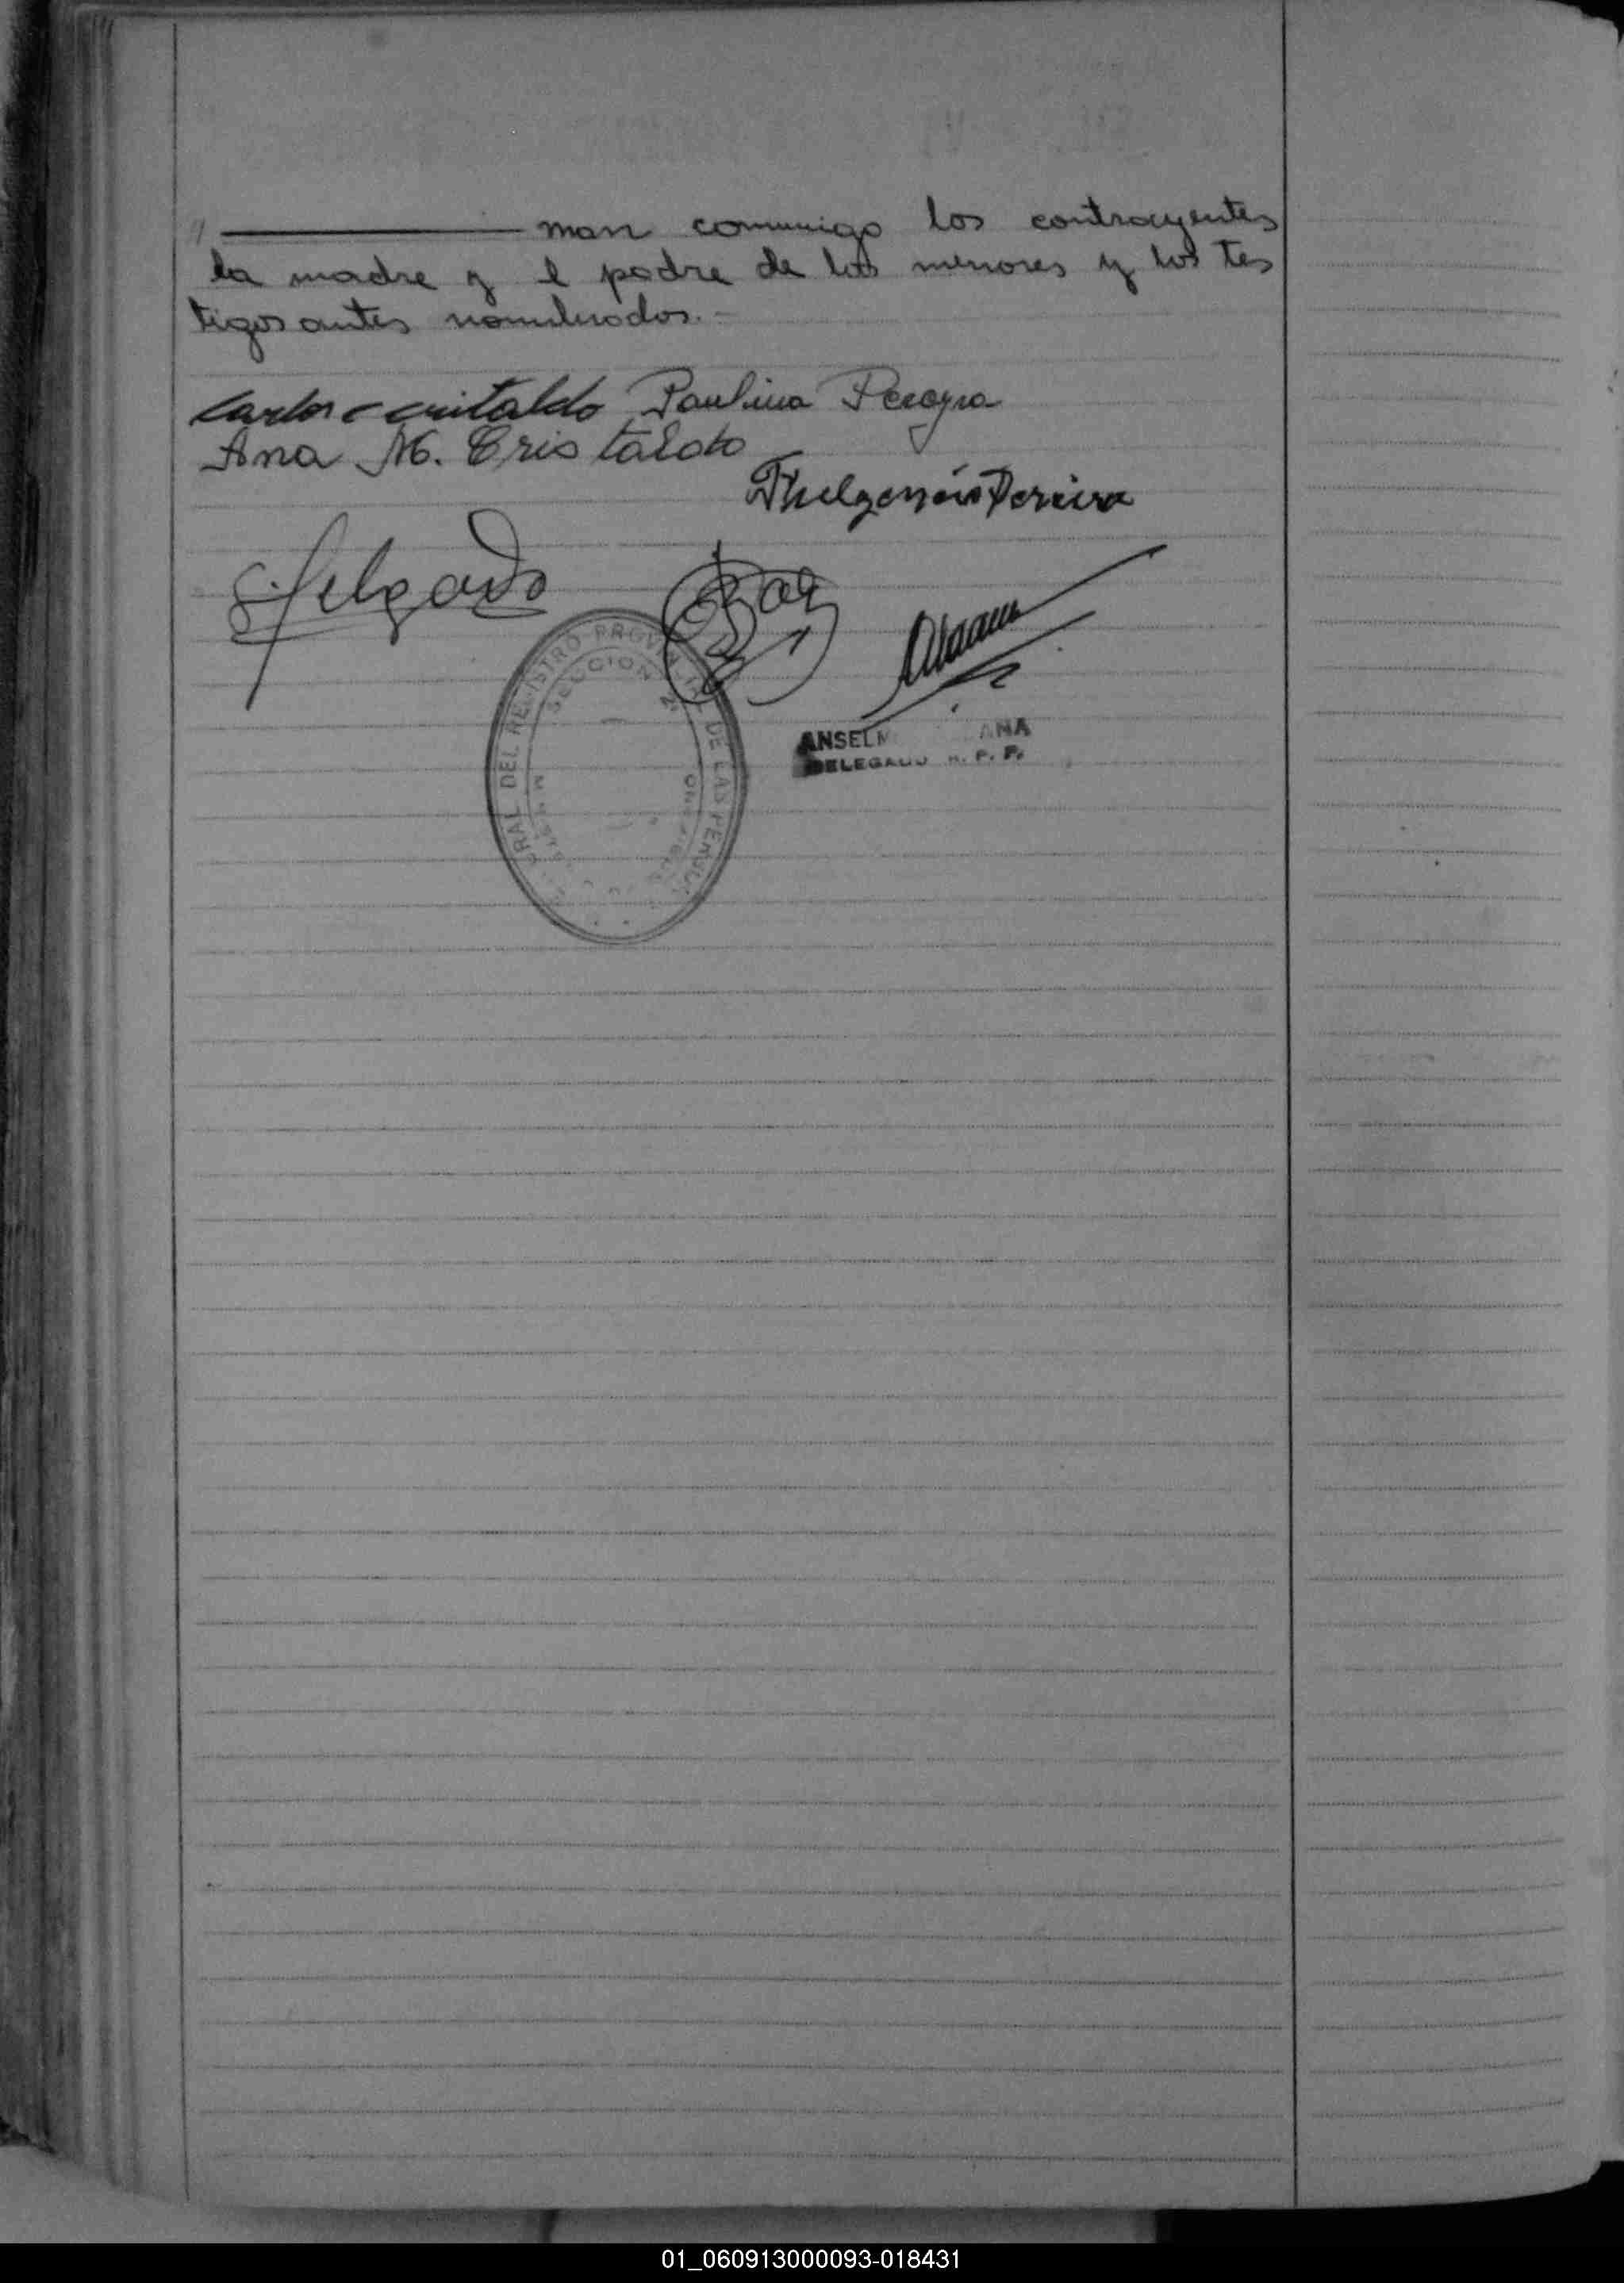 " ———— man conmigo los contrayentes
la madre y el padre de los menores y los tes
tigos antes nombrados.-
Carlos c cristaldo Paulina Pereyra
Ana M. Cristaldo
Pereira
Delgado
DEL REGISTRO PROVINCIAL DE LAS PERSONAS
SECCION
ANSELM ANA
DELEGADO R. P. P.
01_060913000093-018431